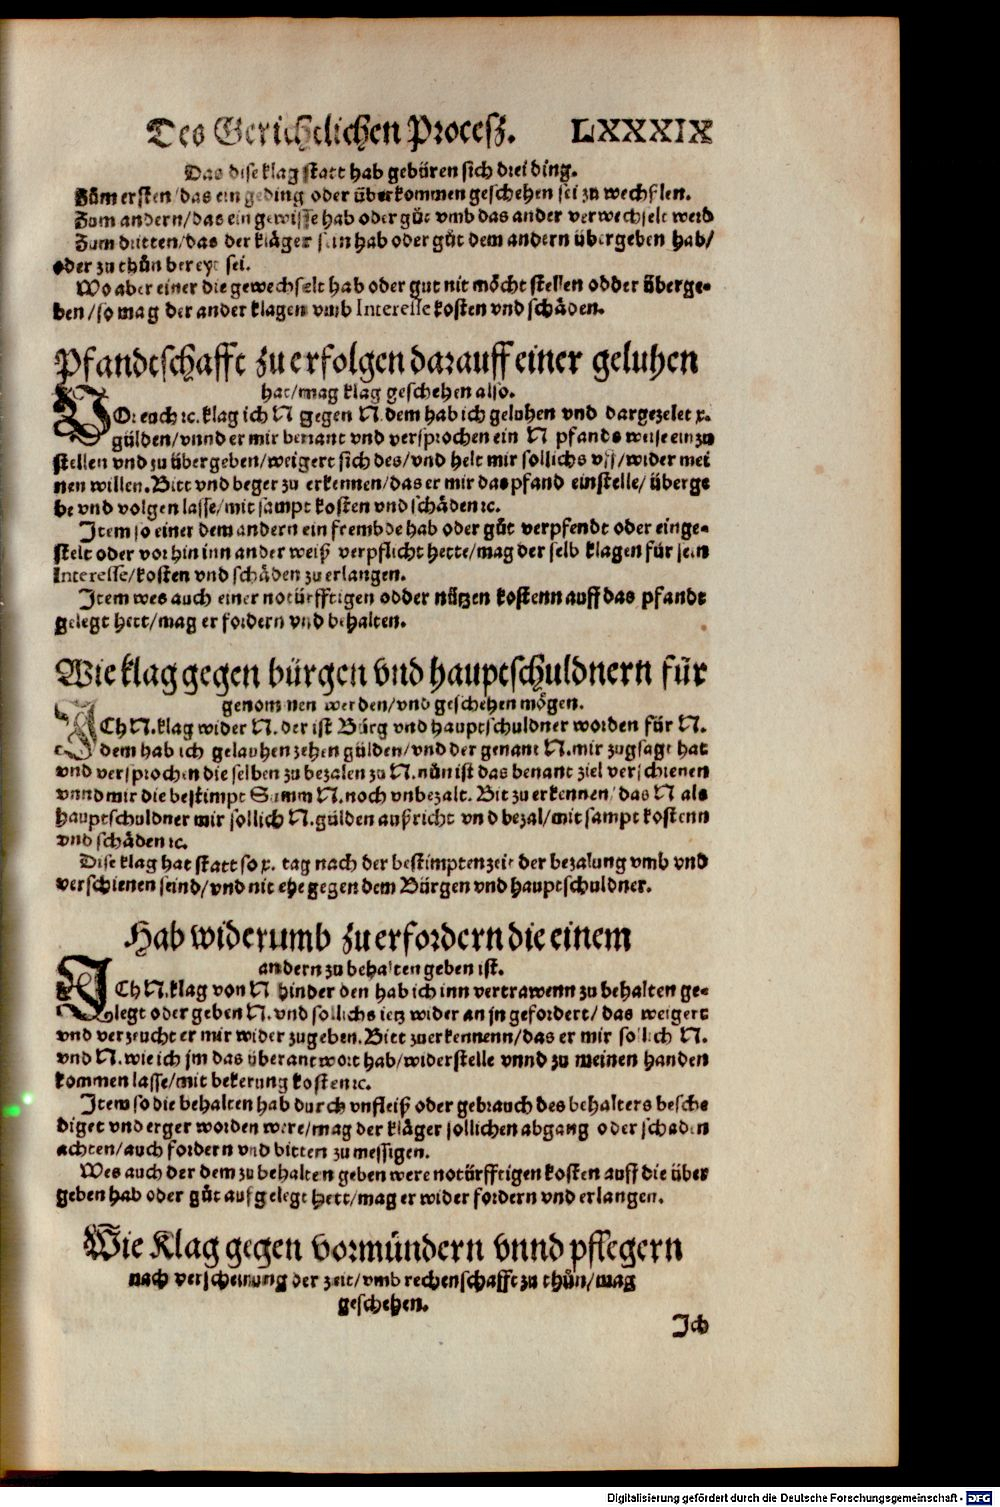 Des Gerichtlichen Procesz. LXXXIX
Das dise klag statt hab gebüren sich drei ding.
Züm ersten/das ein geding oder überkommen geschehen sei zu wechslen.
Zum andern/das ein gewisse hab oder güt vmb das ander verwechselt werd
Zum dritten/das der kläger sein hab oder güt dem andern übergeben hab/
oder zu thün bereyt sei.
Wo aber einer die gewechselt hab oder gut nit möcht stellen odder überge-
ben/so mag der ander klagen vmb Interesse kosten vnd schäden.
Pfandtschafft zu erfolgen darauff einer geluhen
hat/mag klag geschehen also.
VOr euch ꝛc. klag ich N gegen N. dem hab ich geluhen vnd dargezelet x.
gülden/vnnd er mir benant vnd versprochen ein N pfands weise ein zu
stellen vnd zu übergeben/weigert sich des/vnd helt mir sollichs vff/wider mei
nen willen. Bitt vnd beger zu erkennen/das er mir das pfand einstelle/überge
be vnd volgen lasse/mit sampt kosten vnd schäden ꝛc.
Item so einer dem andern ein frembde hab oder güt verpfendt oder einge-
stelt oder vorhin inn ander weiß verpflicht hette/mag der selb klagen für sein
Interesse/kosten vnd schäden zu erlangen.
Item wes auch einer notürfftigen odder nützen kostenn auff das pfandt
gelegt hett/mag er fordern vnd behalten.
Wie klag gegen bürgen vnd hauptschuldnern für
genommen werden/vnd geschehen mögen.
ICh N. klag wider N. der ist Bürg vnd hauptschuldner worden für N.
dem hab ich gelauhen zehen gülden/vnd der genant N. mir zugsagt hat
vnd versprochen die selben zu bezalen zu N. nün ist das benant ziel verschienen
vnnd mir die bestimpt Summ N. noch vnbezalt. Bit zu erkennen/das N als
hauptschuldner mir sollich N. gülden außricht vnd bezal/mit sampt kostenn
vnd schäden ꝛc.
Dise klag hat statt so x. tag nach der bestimpten zeit der bezalung vmb vnd
verschienen seind/vnd nit ehe gegen dem Bürgen vnd hauptschuldner.
Hab widerumb zu erfordern die einem
andern zu behalten geben ist.
ICh N. klag von N hinder den hab ich inn vertrawenn zu behalten ge-
legt oder geben N. vnd sollichs ietz wider an jn gefordert/das weigert
vnd verzeucht er mir wider zugeben. Bitt zuerkennenn/das er mir sollich N.
vnd N. wie ich jm das überantwort hab/widerstelle vnnd zu meinen handen
kommen lasse/mit bekerung kosten ꝛc.
Item so die behalten hab durch vnfleiß oder gebrauch des behalters besche
diget vnd erger worden were/mag der kläger sollichen abgang oder schaden
achten/auch fordern vnd bitten zu messigen.
Wes auch der dem zu behalten geben were notürfftigen kosten auff die über
geben hab oder güt auf gelegt hett/mag er wider fordern vnd erlangen.
Wie Klag gegen vormündern vnnd pflegern
nach verscheinung der zeit/vmb rechenschafft zu thün/mag
geschehen.
Ich
Digitalisierung gefördert durch die Deutsche Forschungsgemeinschaft - DFG